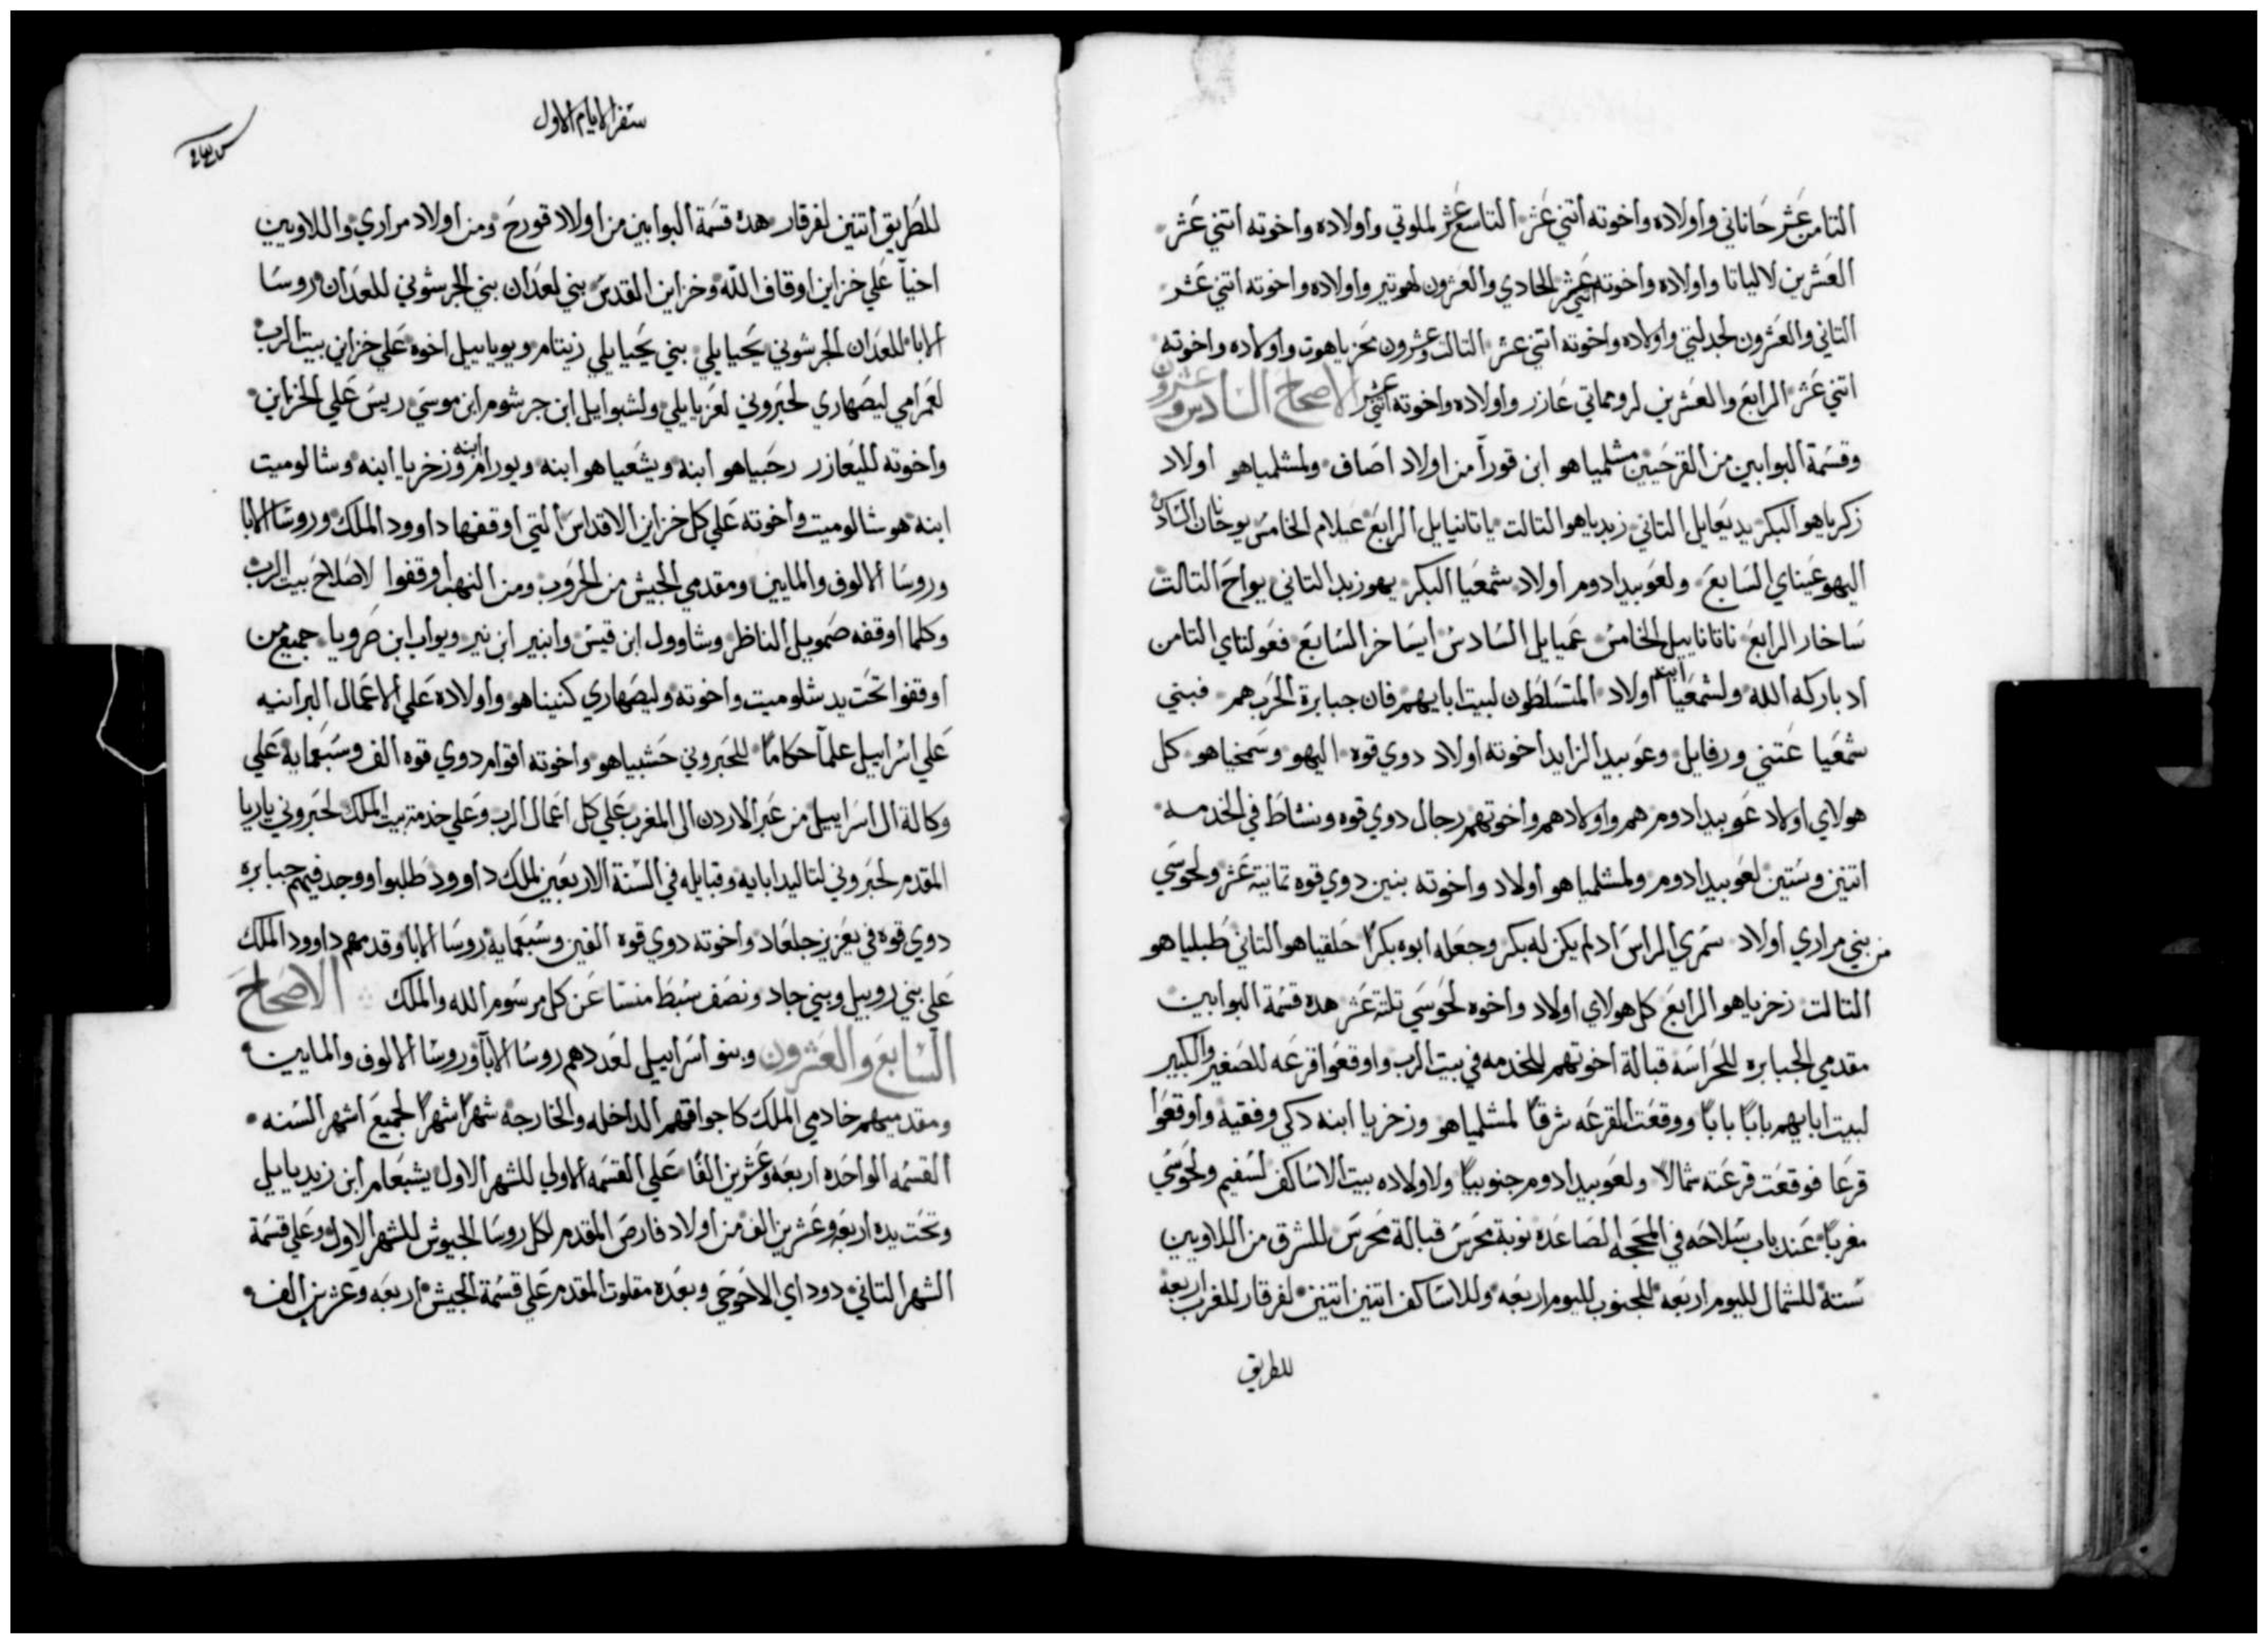 التامن عشر حاناني واولاده واخوته اتني عشر التاسع عشر لملوتي واولاده واخوته اتني عشر
العشرين لالياتا واولاده واخوته اتني عشر الحادي والعشرون لهوتير واولاده واخوته اتني عشر
التاني والعشرون لجدلتي واولاده واخوته اتني عشر التالت وعشرون لمحزياهوت واولاده واخوته
اتني عشر الرابع والعشرين لرومماتي عازر واولاده واخوته اتني عشر الاصحاح السادس وعشرون
وقسمة البوابين من القرحيين مشلمياهو ابن قورا من اولاد اصاف ولمشلمياهو اولاد
زكرياهو البكر يديعايل التاني زبدياهو التالت ياتانيايل الرابع عيلام الخامس يوحانان السادس
اليهوعيناي السابع ولعوبيد ادوم اولاد شمعيا البكر يهوزبد التاني يواح التالت
ساخار الرابع ناتاناييل الخامس عميايل السادس ايساخر السابع فعولتاي التامن
اد باركه الله ولشمعيا ابنه اولاد المتسلطون لبيت ابايهم فان جبابرة الحرب هم فبني
شمعيا عتني ورفايل وعوبيد الزابد اخوته اولاد دوي قوه اليهو وسمخياهو كل
هولاي اولاد عوبيد ادوم هم واولادهم واخوتهم رجال دوي قوه ونشاط في الخدمه
اتنين وستين لعوبيد ادوم ولمشلمياهو اولاد واخوته بنين دوي قوه تمانية عشر ولحوسي
من بني مراري اولاد سمري الراس اد لم يكن له بكر وجعله ابوه بكرا حلقياهو التاني طبلياهو
التالت زخرياهو الرابع كل هولاي اولاد واخوه لحوسي تلتة عشر هده قسمة البوابين
مقدمي الجبابره للحراسة قبالة اخوتهم للخدمه في بيت الرب واوقعوا قرعه للصغير والكبير
لبيت ابايهم بابا بابا ووقعت القرعه شرقا لمشلمياهو وزخريا ابنه دكي وفقيه واوقعوا
قرعا فوقعت قرعته شمالا ولعوبيد ادوم جنوبيا ولاولاده بيت الاساكف لسفيم ولحوسي
مغربا عند باب سلاحه في المحجه الصاعده نوبة محرس قبالة محرس للشرق من اللاويين
ستة للشمال لليوم اربعه للجنوب لليوم اربعه وللاساكف اتنين اتنين لفرقار للغرب اربعة
للطريق
سفر الايام الاول
للطريق اتنين لفرقار هده قسمة البوابين من اولاد قورح ومن اولاد مراري واللاويين
اخيا علي خزاين اوقاف الله وخزاين القدس بني لعدان بني الجرشوني للعدان روسا
الابا للعدان الجرشوني يحيايلي بني يحيايلي زيتام ويوياييل اخوه علي خزاين بيت الرب
لعمرامي ليصهاري لحبروني لعزيايلي ولشبوايل ابن جرشوم ابن موسي ريس علي الخزاين
واخوته لليعازر رحبياهو ابنه ويشعياهو ابنه ويورام ابنه وزخريا ابنه وشالوميت
ابنه هو شالوميت واخوته علي كل خزاين الاقداس التي اوقفها داوود الملك وروسا الابا
وروسا الالوف والمايين ومقدمي الجيش من الحروب ومن النهب اوقفوا لاصلاح بيت الرب
وكلما اوقفه صمويل الناظر وشاوول ابن قيس وابنير ابن نير ويواب ابن صرويا جميع من
اوقفوا تحت يد شلوميت واخوته وليصهاري كنيناهو واولاده علي الاعمال البرانيه
علي اسراييل علما حكاما للحبروني حشبياهو واخوته اقوام دوي قوه الف وسبعمايه علي
وكالة ال اسراييل من عبر الاردن الي المغرب علي كل اعمال الرب وعلي خدمة بيت الملك لحبروني ياريا
المقدم لحبروني لتاليد ابايه وقبايله في السنة الاربعين لملك داوود طلبوا ووجد فيهم جبابره
دوي قوه في يعزيز جلعاد واخوته دوي قوه الفين وسبعمايه روسا الابا وقدمهم داوود الملك
علي بني روبيل وبني جاد ونصف سبط منسا عن كل مرسوم الله والملك الاصحاح
السابع والعشرون وبنو اسراييل لعددهم روسا الابا وروسا الالوف والمايين
ومقدميهم خادمي الملك كاجواقهم الداخله والخارجه شهرا شهرا لجميع اشهر السنه
القسمه الواحده اربعه وعشرين الفا علي القسمه الاولي للشهر الاول يشبعام ابن زبديايل
وتحت يده اربعه وعشرين الف من اولاد فارص المقدم لكل روسا الجيوش للشهر الاول وعلي قسمة
الشهر التاني دوداي الاحوحي وبعده مقلوت المقدم علي قسمة الجيش اربعه وعشرين الف